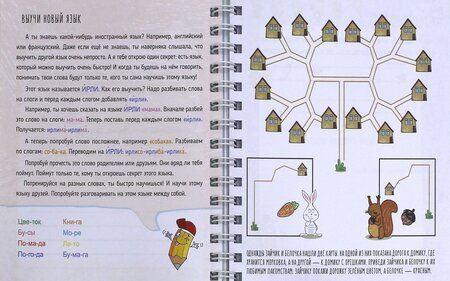 ВЫУЧИ НОВЫЙ ЯЗЫК
А ты знаешь какой-нибудь иностранный язык? Например, английский
или французский. Даже если ещё не знаешь, ты наверняка слышала, что
выучить другой язык очень непросто. А я тебе открою один секрет: есть язык,
который можно выучить очень быстро! И когда ты будешь на нём говорить,
понимать твои слова будут только те, кого ты сама научишь этому языку!
Этот язык называется ИРЛИ. Как его выучить? Надо разбивать слова
на слоги и перед каждым слогом добавлять «ирли».
Например, ты хочешь сказать на языке ИРЛИ «мама». Вначале разбей
это слово на слоги: ма-ма. Теперь поставь перед каждым слогом «ирли».
Получается: ирлима-ирлима.
А теперь попробуй слово посложнее, например «собака». Разбиваем
по слогам: со-ба-ка. Переводим на ИРЛИ: ирлисо-ирлиба-ирлика.
Попробуй прочесть это слово родителям или друзьям. Они вряд ли тебя
поймут. Поймут только те, кому ты откроешь секрет этого языка.
Потренируйся на разных словах, ты быстро научишься! И научи этому
языку друзей. Попробуйте разговаривать на этом языке между собой.
Цве-ток
Бу-сы
По-ма-да
По-го-да
Кни-га
Мо-ре
Ле-то
Бу-ма-га
ОДНАЖДЫ ЗАЙЧИК И БЕЛОЧКА НАШЛИ ДВЕ КАРТЫ. НА ОДНОЙ ИЗ НИХ ПОКАЗАНА ДОРОГА К ДОМИКУ, ГДЕ
ХРАНИТСЯ МОРКОВКА, А НА ДРУГОЙ — К ДОМИКУ С ОРЕШКАМИ. ПРИВЕДИ ЗАЙЧИКА И БЕЛОЧКУ К ИХ
ЛЮБИМЫМ ЛАКОМСТВАМ. ЗАЙЧИКУ ПОКАЖИ ДОРОЖКУ ЗЕЛЁНЫМ ЦВЕТОМ, А БЕЛОЧКЕ — КРАСНЫМ.